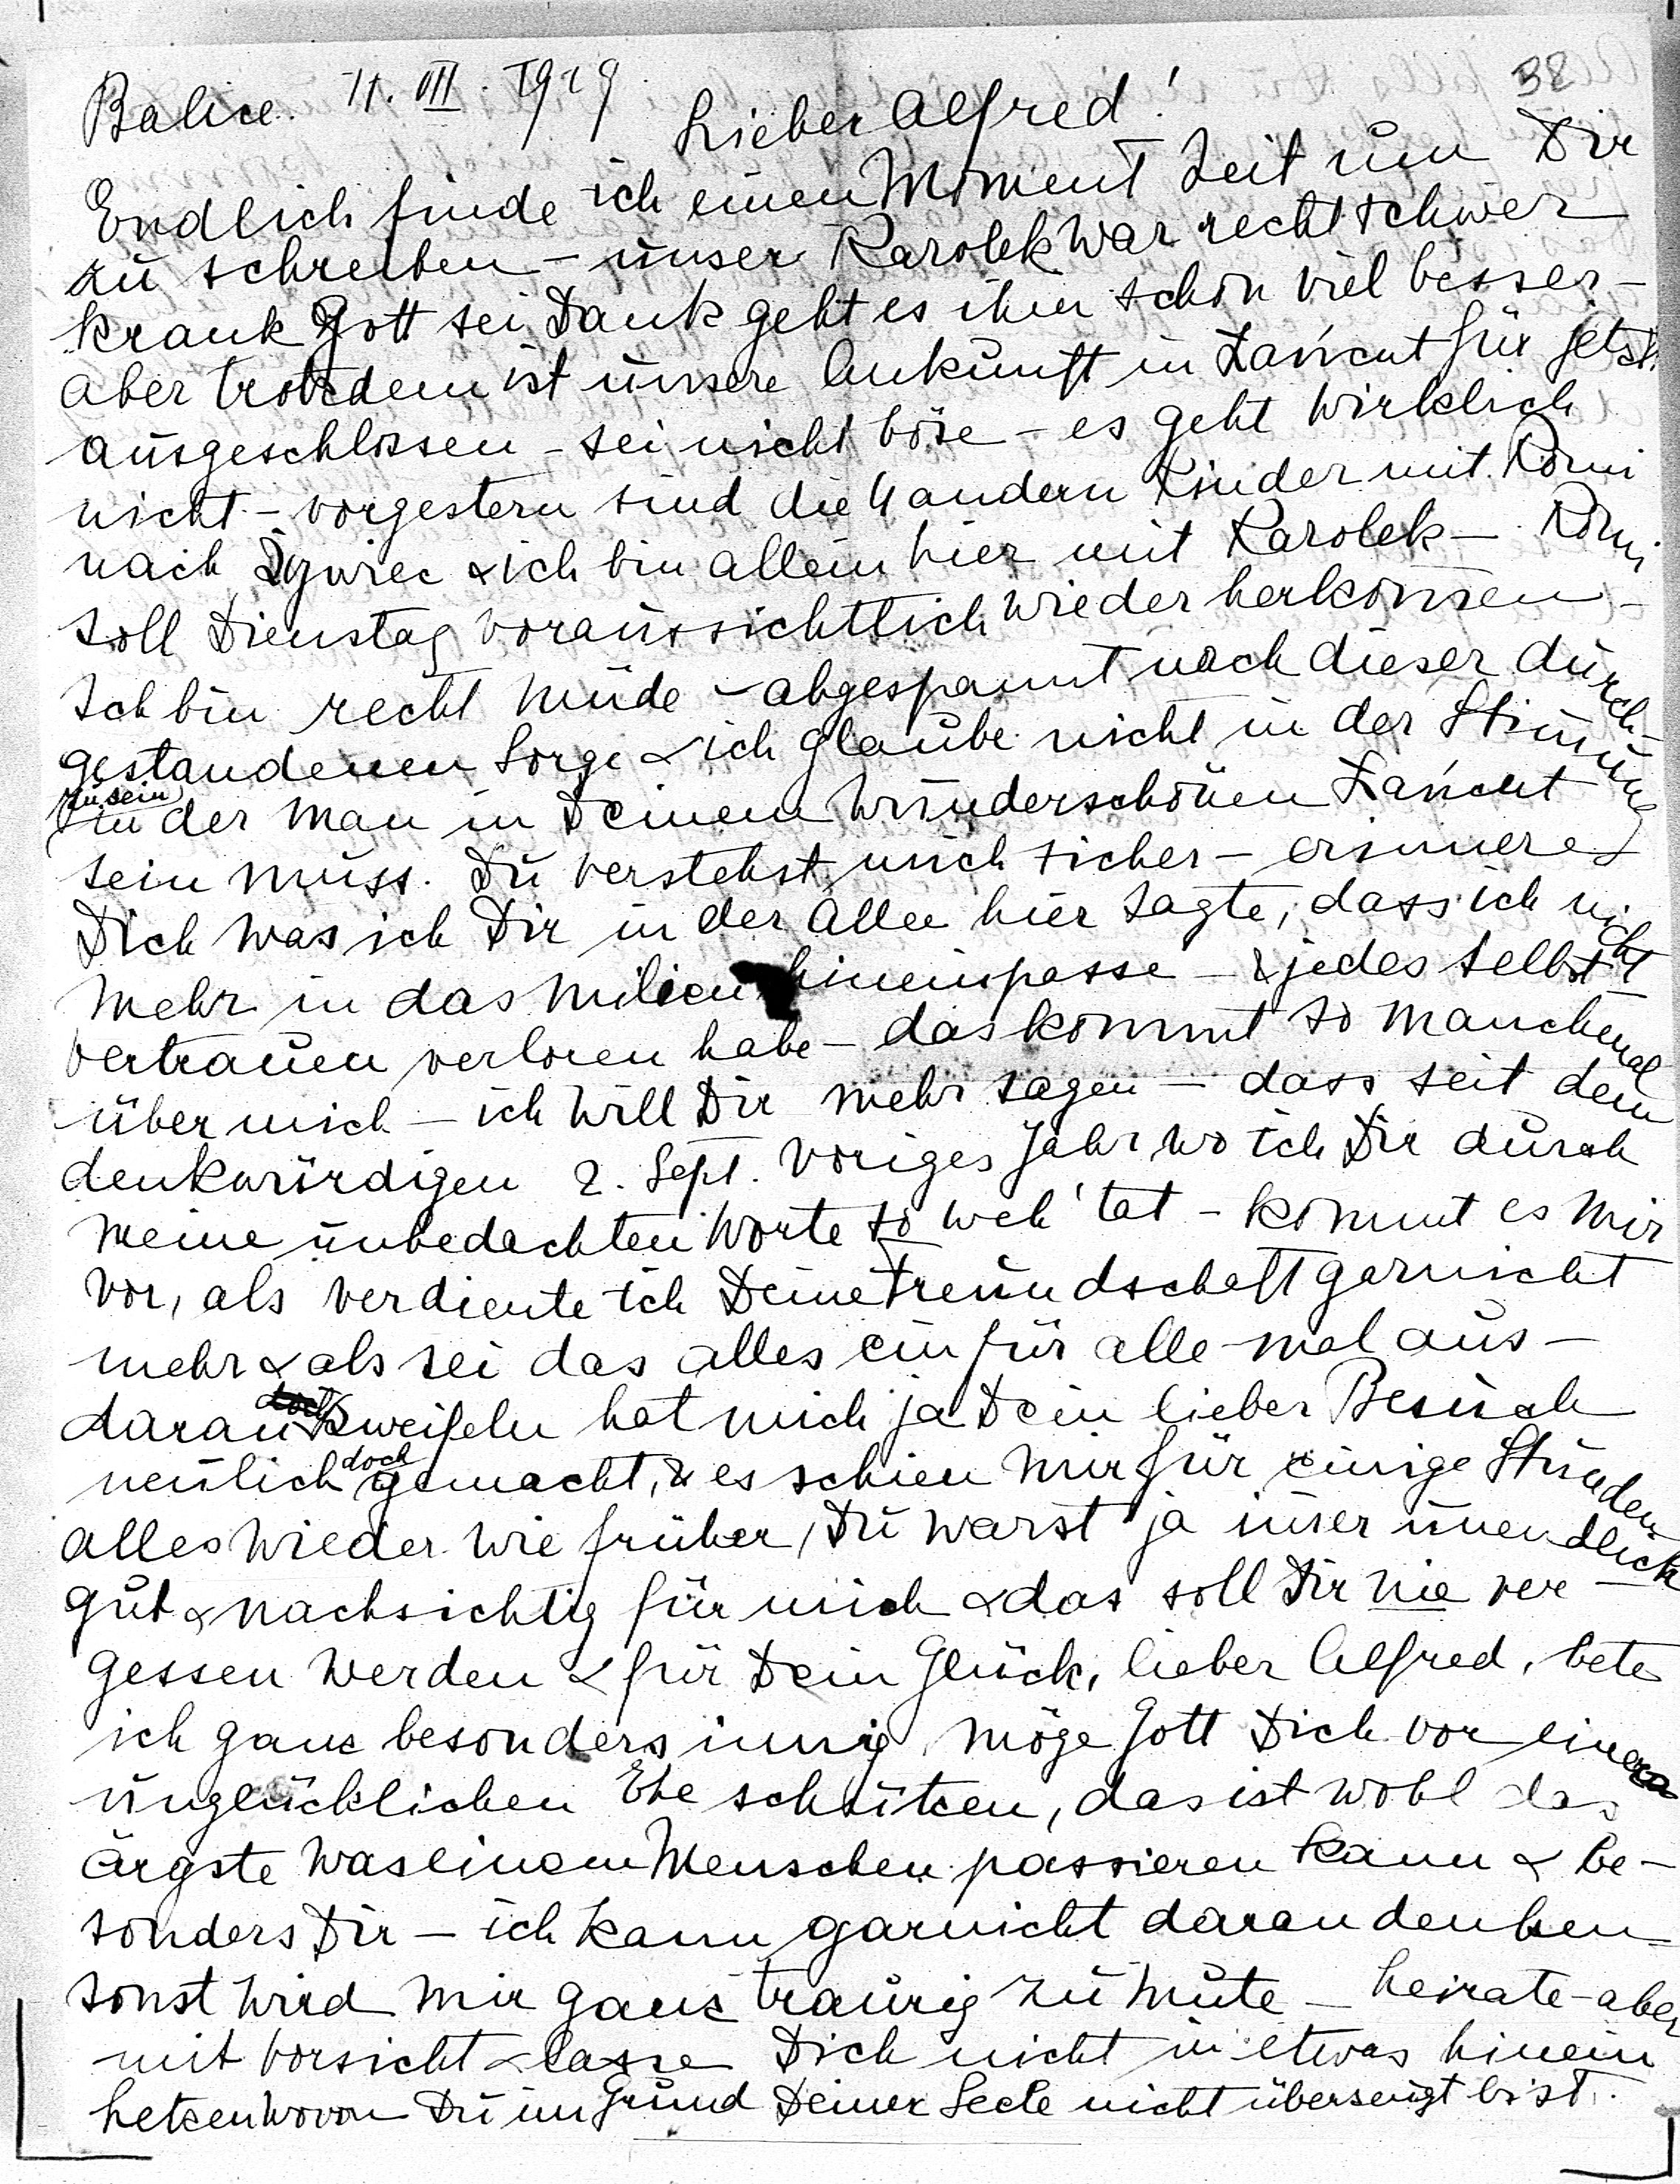 38
Balice. 11. VII. 1929
Lieber Alfred!
Endlich finde ich einen Moment Zeit um Dir
zu schreiben – unser Karolek war recht schwer
krank Gott sei Dank geht es ihm schon viel besser –
aber trotzdem ist unsere Ankunft in Łańcut für jetzt
ausgeschlossen – sei nicht böse – es geht wirklich
nicht – vorgestern sind die 4 andern Kinder mit Romi
nach Żywiec & ich bin allein hier mit Karolek – Romi
soll Dienstag voraussichtlich wieder herkom̄en –
Ich bin recht müde – abgespannt nach dieser durch-
gestandenen Sorge & ich glaube nicht in der Stim̄ung
zu sein
in der man in Deinem wunderschönen Łańcut
sein muss. Du verstehst mich sicher – erinnere
Dich was ich Dir in der Allee hier sagte, dass ich nicht
mehr in das Milieu hineinpasse – & jedes Selbst-
vertrauen verloren habe – das kommt so manchmal
über mich – ich will Dir mehr sagen – dass seit dem
denkwürdigen 2. Sept. voriges Jahr wo ich Dir durch
meine unbedachten Worte so weh' tat – kommt es mir
vor, als verdiente ich Deine Freundschaft garnicht
mehr & als sei das alles ein für alle-mal aus –
daran zweifeln hat mich ja Dein lieber Besuch
neulich doch gemacht, & es schien mir für einige Stunden
alles wieder wie früher, Du warst ja im̄er unendlich
gut & nachsichtig für mich & das soll Dir nie ver-
gessen werden & für Dein Glück, lieber Alfred, bete
ich ganz besonders innig, möge Gott Dich vor einer
unglücklichen Ehe schützen, das ist wohl das
ärgste was einem Menschen passieren kann & be-
sonders Dir – ich kann garnicht daran denken –
sonst wird mir ganz traurig zu mute – heirate – aber
mit Vorsicht & lasse Dich nicht in etwas hinein
hetzen wovon Du im Grund Deiner Seele nicht überzeugt bist.